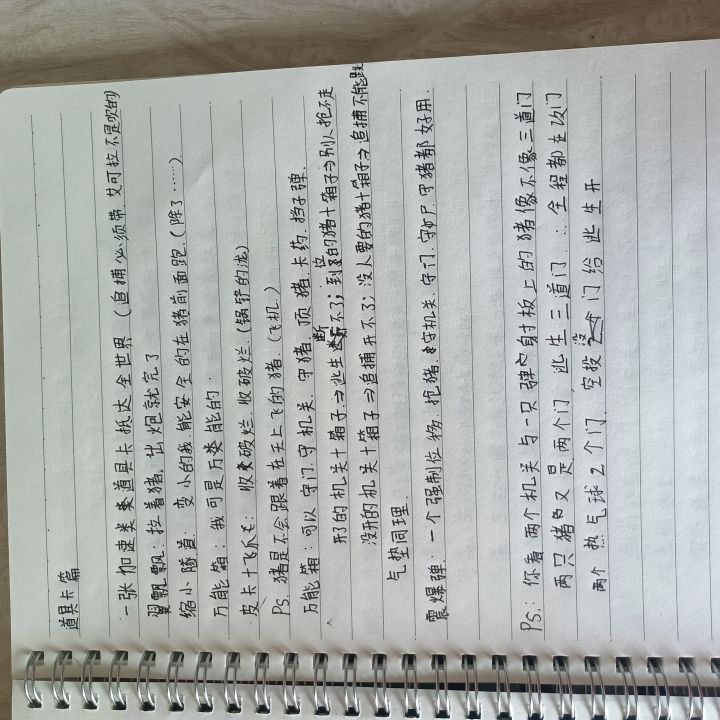 道具卡篇
一张加速类奏道具卡抵达全世界（追捕必须带，艾可拉不是吹的）
翼飘飘：拉着猪，出炮就完了
缩小隧道：变小的我，能安全的在猪前面跑.（除了……）
万能箱：我可是万类能的.
皮卡+飞爪：收破烂，收破烂.（锅铲的泷）
Ps.猪是不会跟着在天上飞的猪.（飞机.）
万能箱：可以守门.守机关.守猪.顶猪.卡药.挡子弹.
开了的机关+箱子→逃生断不了；到位的猪+箱子→别人抢不走
没开的机关+箱子→追捕开不了；没人要的猪+箱子→追捕不能踢
气垫同理.
震爆弹：一个强制位移.抢猪.守机关.守门.守炉尸.守猪都好用.
Ps：你看两个机关与一只弹穿射板上的猪像不像三道门
两只猪又是两个门，逃生三道门∴全程都在改门
两个热气球2个门，空投没门给逃生开